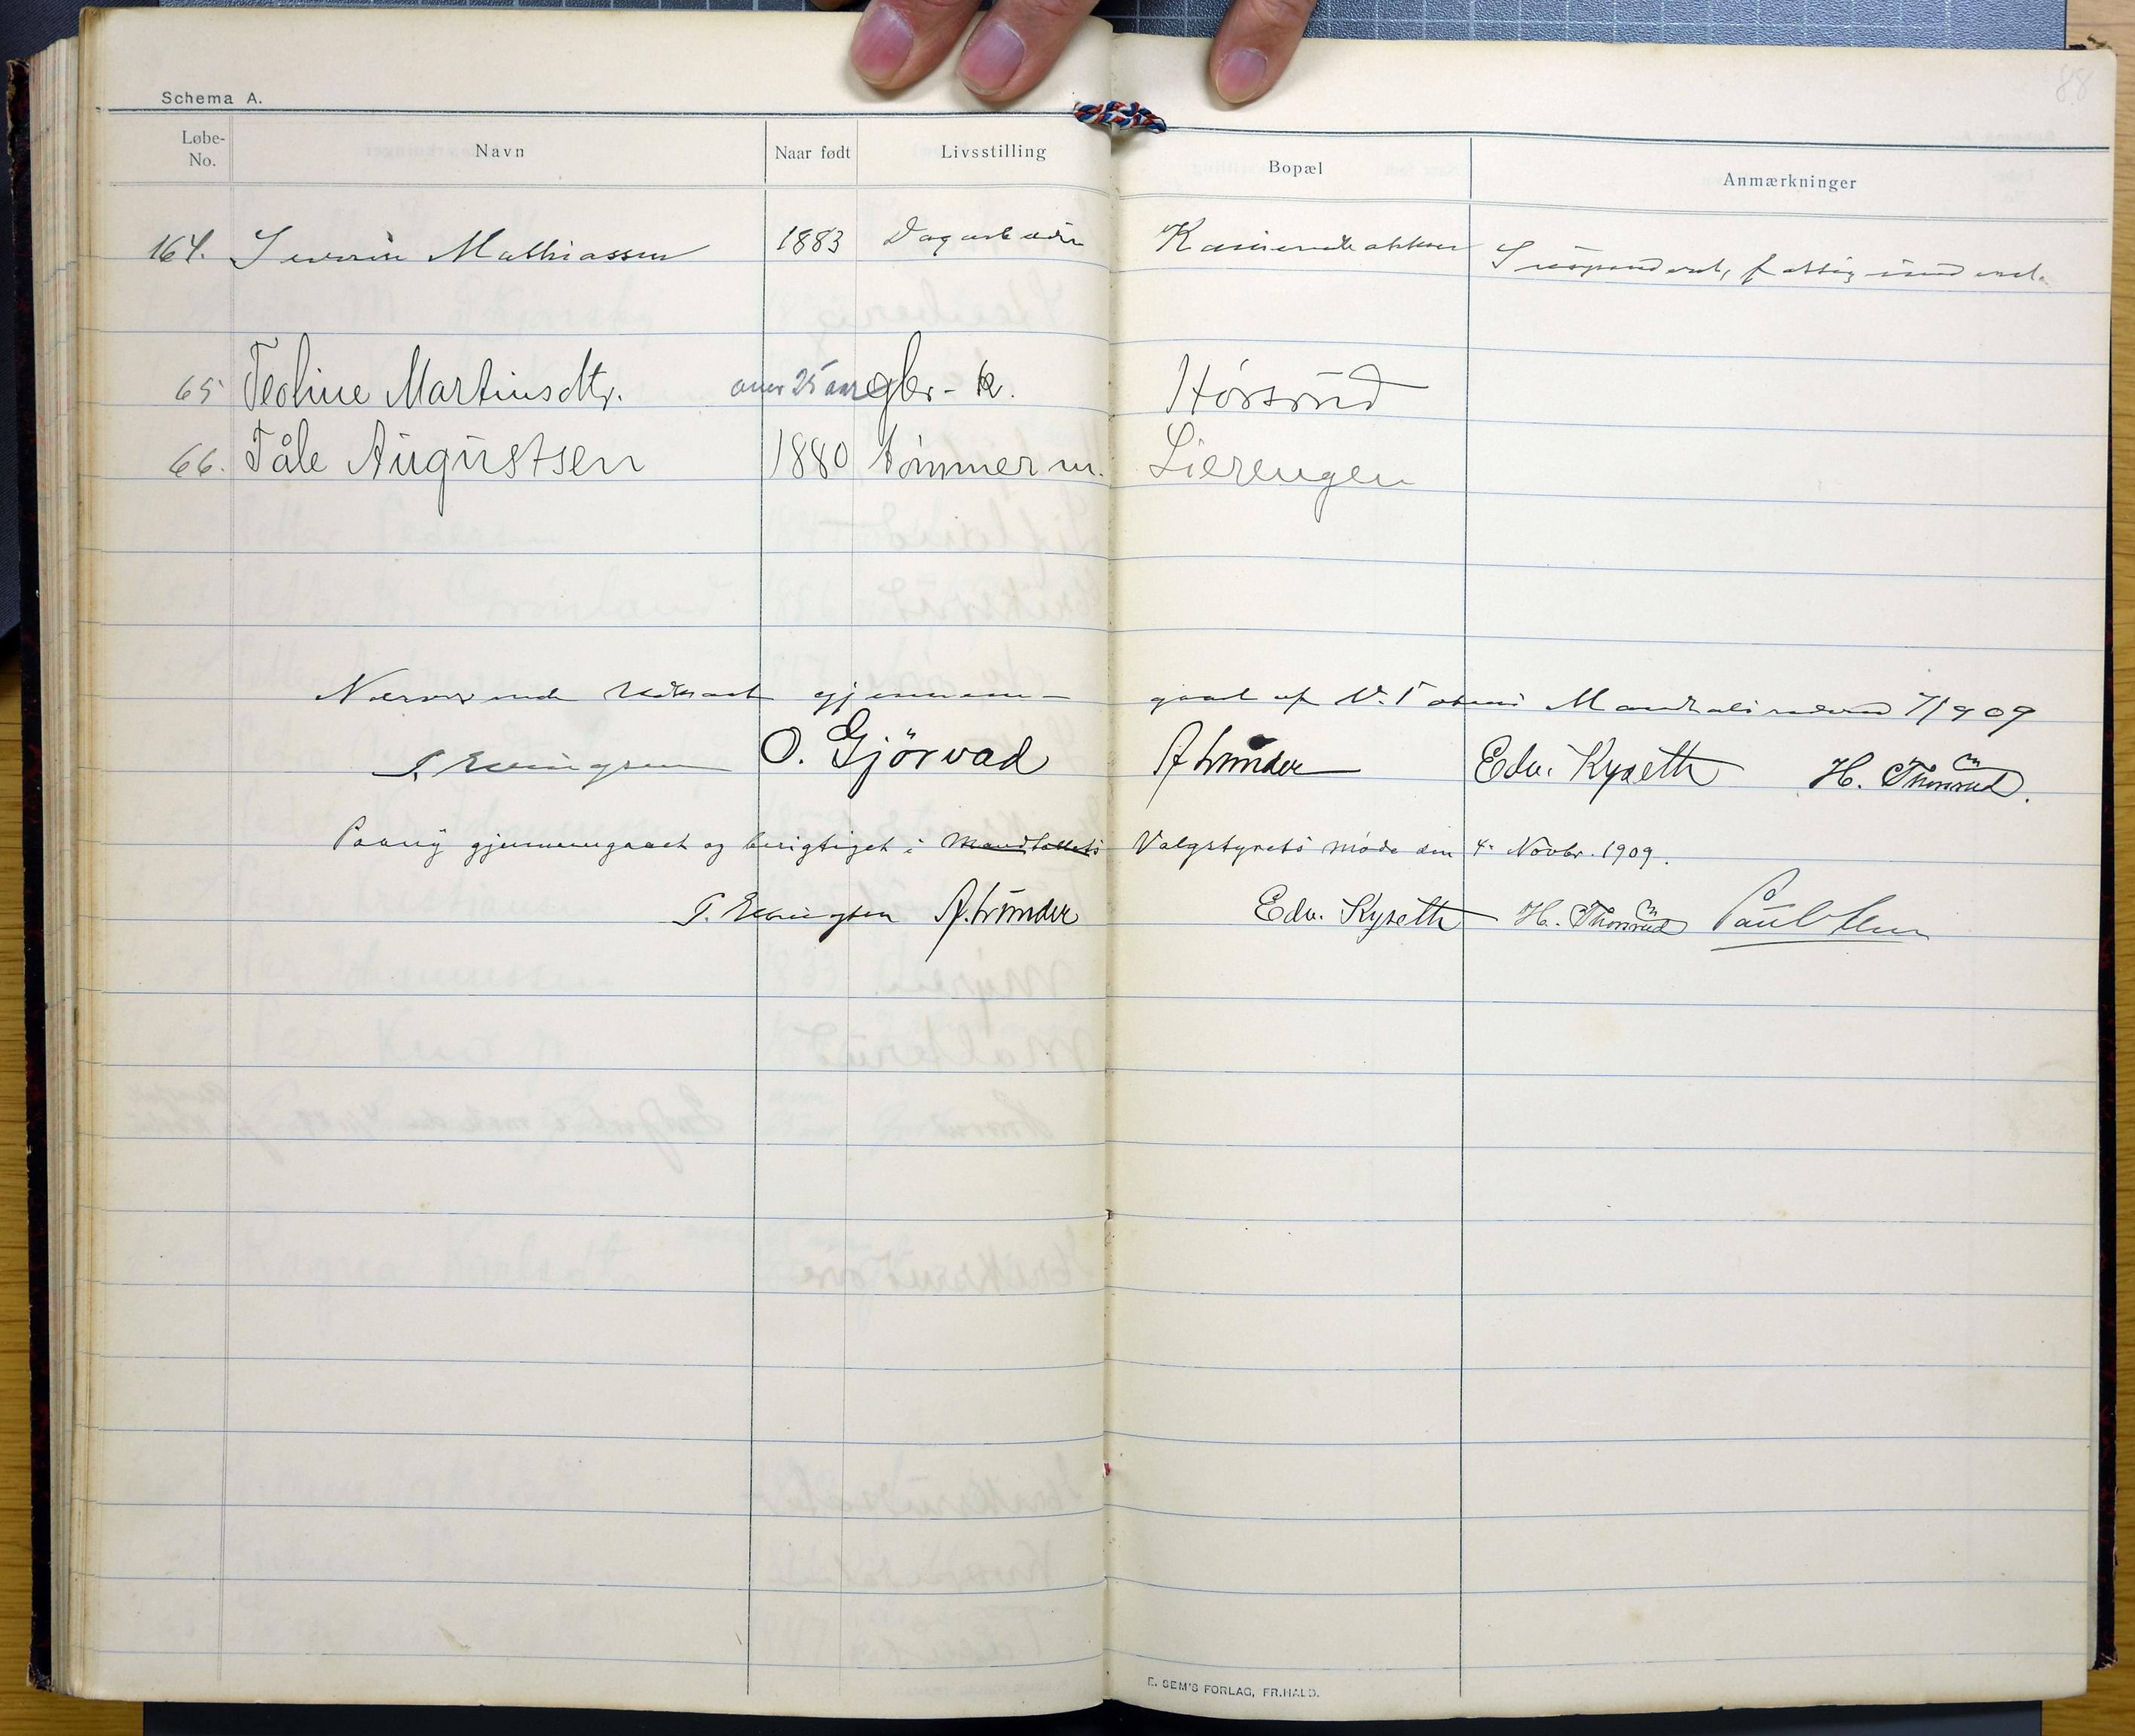 88
Schema A.
Løbe-No. Navn Naar født Livsstilling Bopæl Anmærkninger
164. Severin Mathiassen 1883 Dagarbeider Suspenderet, fattigunderst.
65 Teoline Martinsdtr. over 25 aar gbr-k. Hørsrud
66. Påle Augustsen 1880 tømmerm. Lierengen
Nærværende Udkast gjennem- gaaet af V. Totens Mandtalsraderne 7/9 09
P. Evensen O. Gjörvad A. Lunder Edv. Kyseth H. Thonsrud.
Paany gjennemgaaet og berigtiget i Mandtallets Valgstyrets møde den 4. Novbr. 1909.
A. Lunder Edv. Kyseth H. Thonsrud Paul
E. SEM'S FORLAG, FR.HALD.